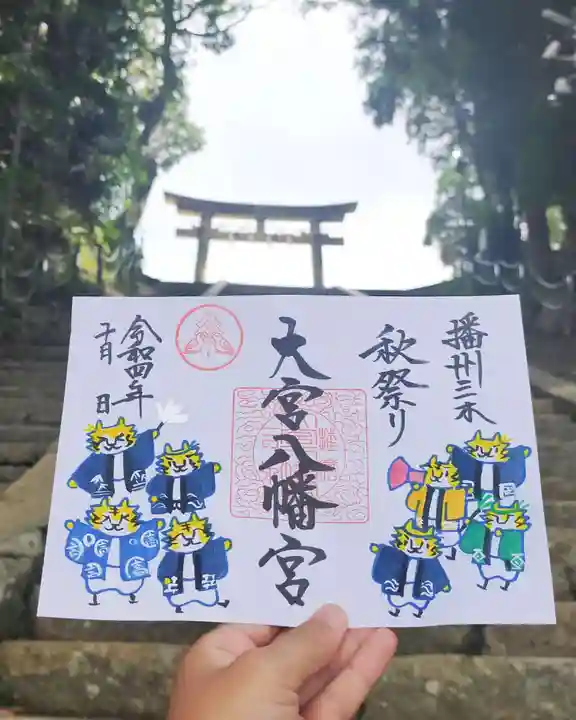 播州三木
秋祭り
大宮八幡宮
令和四年
十月 日